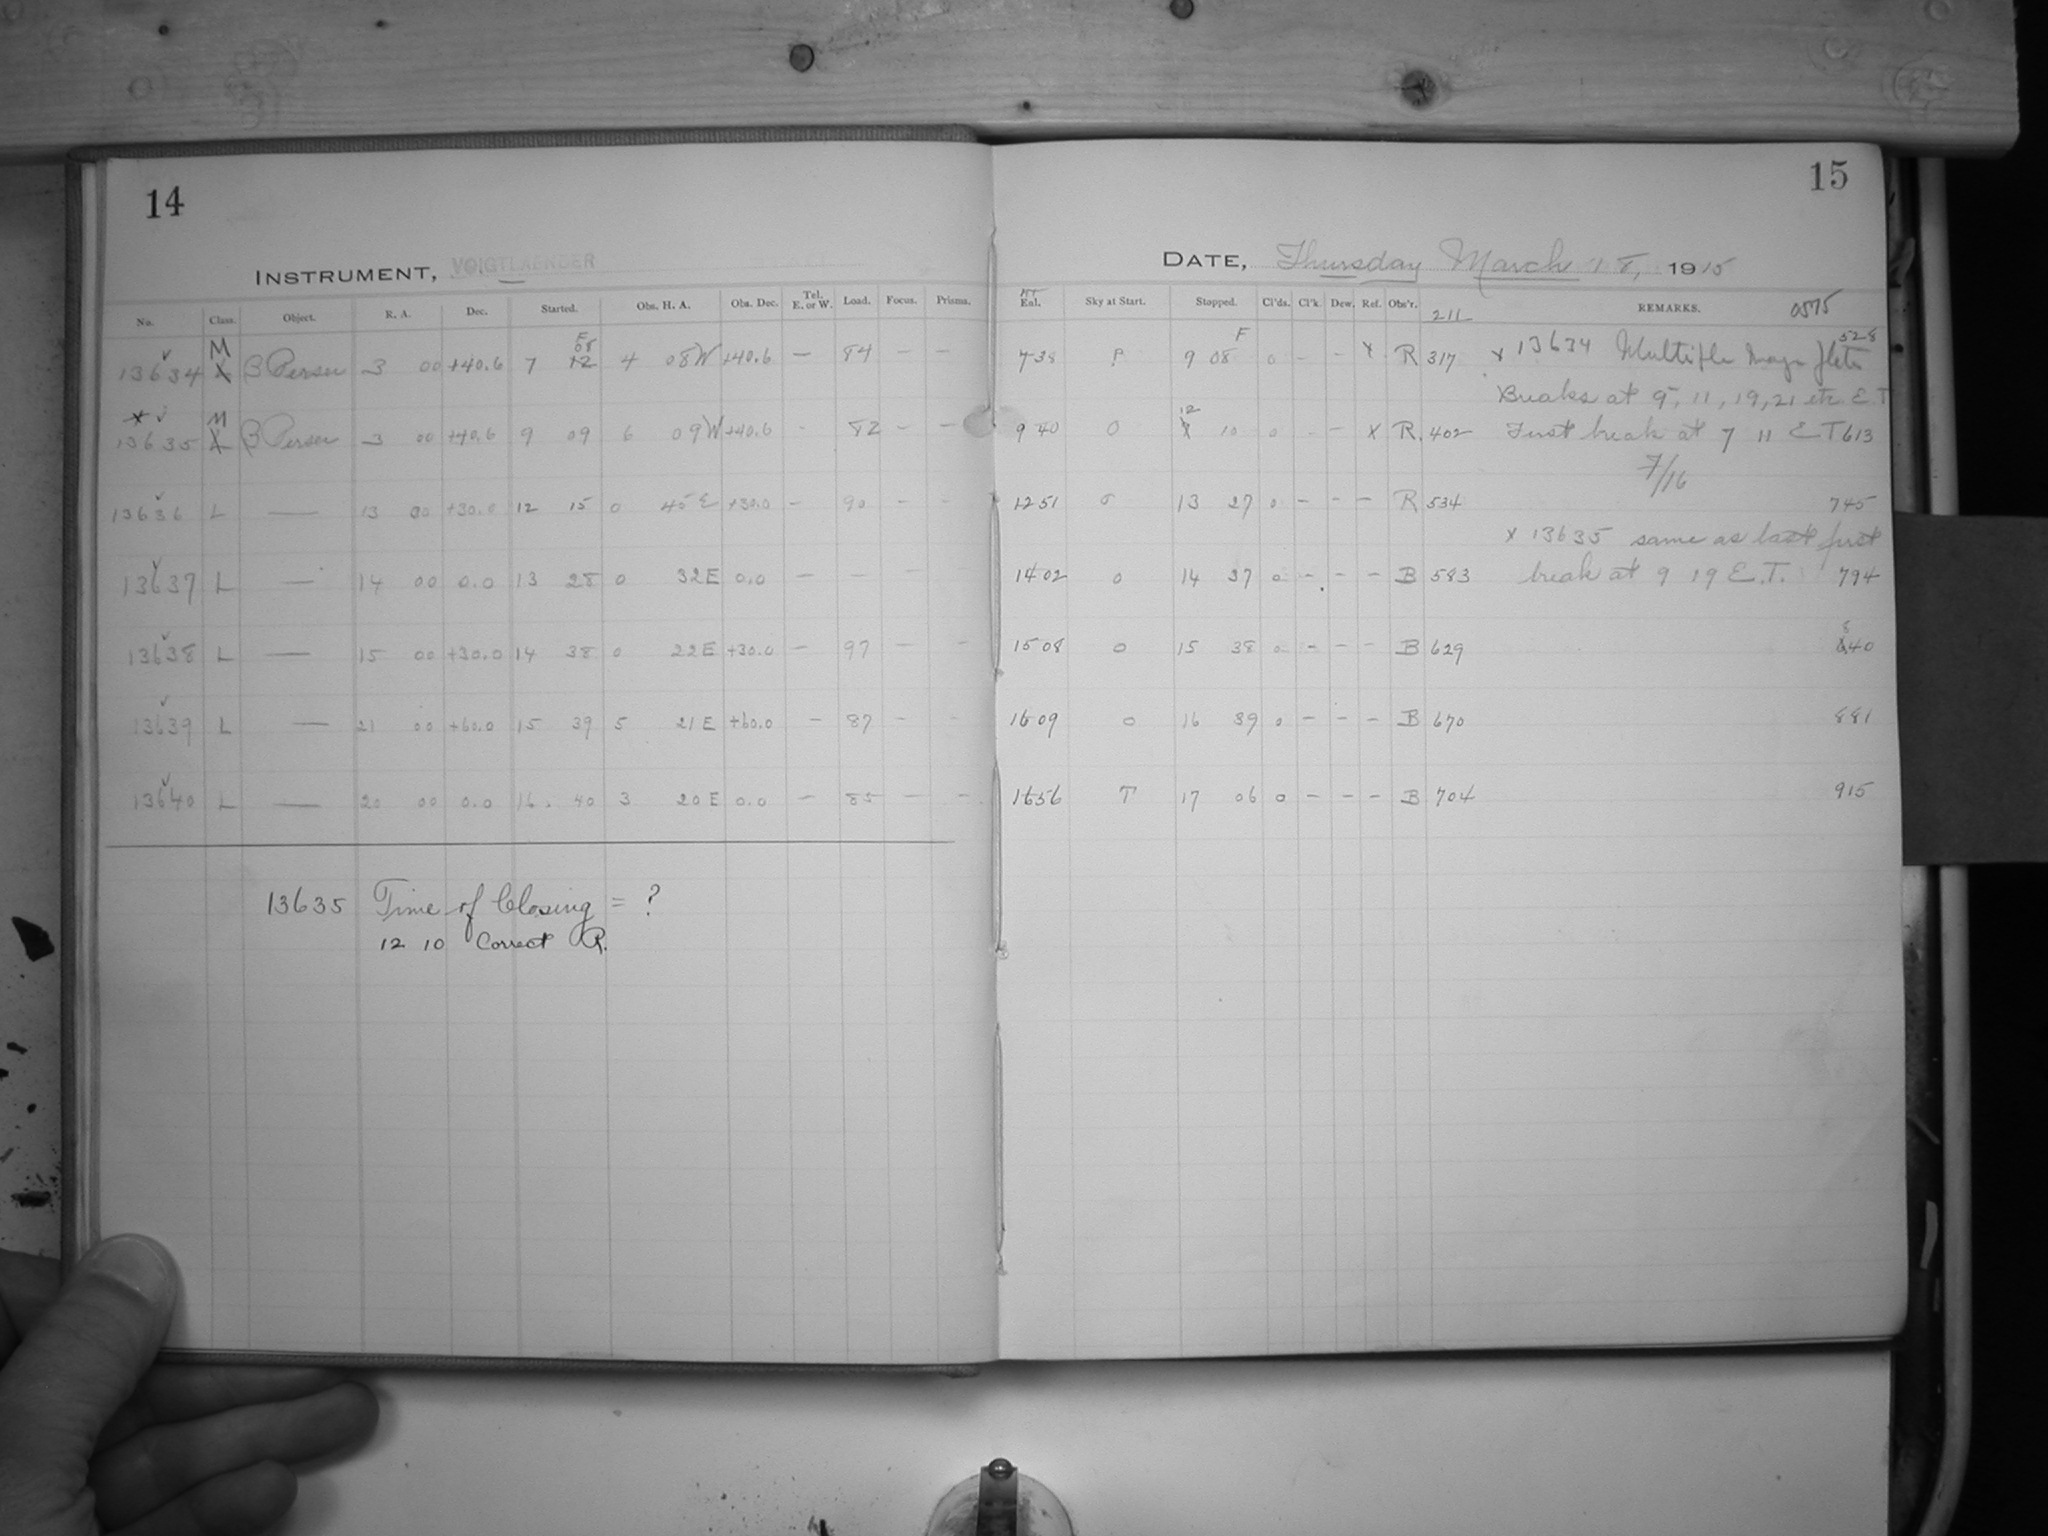 14
15
INSTRUMENT, VOIGTLAENDER
DATE, Thursday March 18, 1915
No. Class. Object. R. A. Dec. Started. Obs. H. A. Obs. Dec. Tel. E. or W. Load. Focus. Prisms. Enl. Sky at Start. Stopped. Cl'ds. Cl'k. Dew. Ref. Obs'r. 211 REMARKS. 0575
M F 08 F 528
13634 β Persei 3 00 +40.6 7 12 4 08 W +40.6 — 84 — — 738 P 9 08 0 - - x R 317 x 13634 Multiple
Breaks at 9, 11, 19, 21 etc E T
* M 12
13635 β Persei 3 00 +40.6 9 09 6 09 W +40.6 - 82 — — 9 40 0 10 0 - - x R. 402 First break at 7 11 E T 613
7/16
13636 L — 13 00 +30.0 12 15 0 45 E +30.0 - 90 - - 1251 0 13 27 0 - - - R 534 745
x 13635 same as last first
13637 L — 14 00 0.0 13 28 0 32 E 0.0 — — — - 1402 0 14 37 0 - - - B 583 break at 9 19 E.T. 794
13638 L — 15 00 +30.0 14 38 0 22 E +30.0 — 97 — - 1508 0 15 38 0 - - - B 629 840
13639 L — 21 00 +60.0 15 39 5 21 E +60.0 - 87 - - 1609 0 16 39 0 - - - B 670 881
13640 L — 20 00 0.0 16. 40 3 20 E 0.0 — 85 — - 1656 T 17 06 0 - - - B 704 915
13635 Time of Closing = ?
12 10 Correct R.